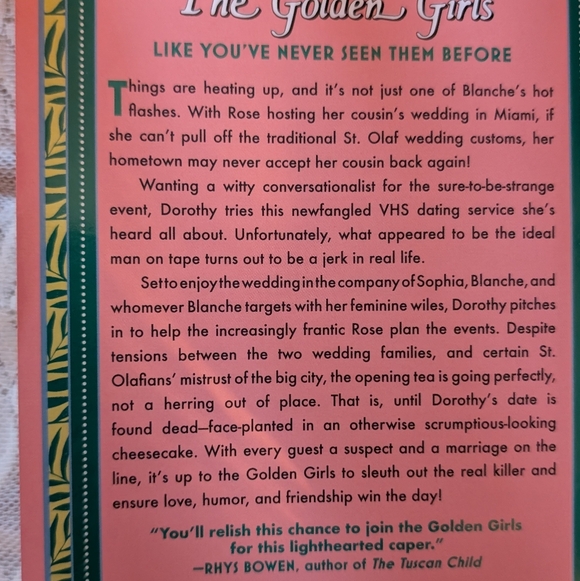 The Golden Girls
LIKE YOU'VE NEVER SEEN THEM BEFORE
Things are heating up, and it's not just one of Blanche's hot
flashes. With Rose hosting her cousin's wedding in Miami, if
she can't pull off the traditional St. Olaf wedding customs, her
hometown may never accept her cousin back again!
Wanting a witty conversationalist for the sure-to-be-strange
event, Dorothy tries this newfangled VHS dating service she's
heard all about. Unfortunately, what appeared to be the ideal
man on tape turns out to be a jerk in real life.
Set to enjoy the wedding in the company of Sophia, Blanche, and
whomever Blanche targets with her feminine wiles, Dorothy pitches
in to help the increasingly frantic Rose plan the events. Despite
tensions between the two wedding families, and certain St.
Olafians' mistrust of the big city, the opening tea is going perfectly,
not a herring out of place. That is, until Dorothy's date is
found dead—face-planted in an otherwise scrumptious-looking
cheesecake. With every guest a suspect and a marriage on the
line, it's up to the Golden Girls to sleuth out the real killer and
ensure love, humor, and friendship win the day!
"You'll relish this chance to join the Golden Girls
for this lighthearted caper."
—RHYS BOWEN, author of The Tuscan Child